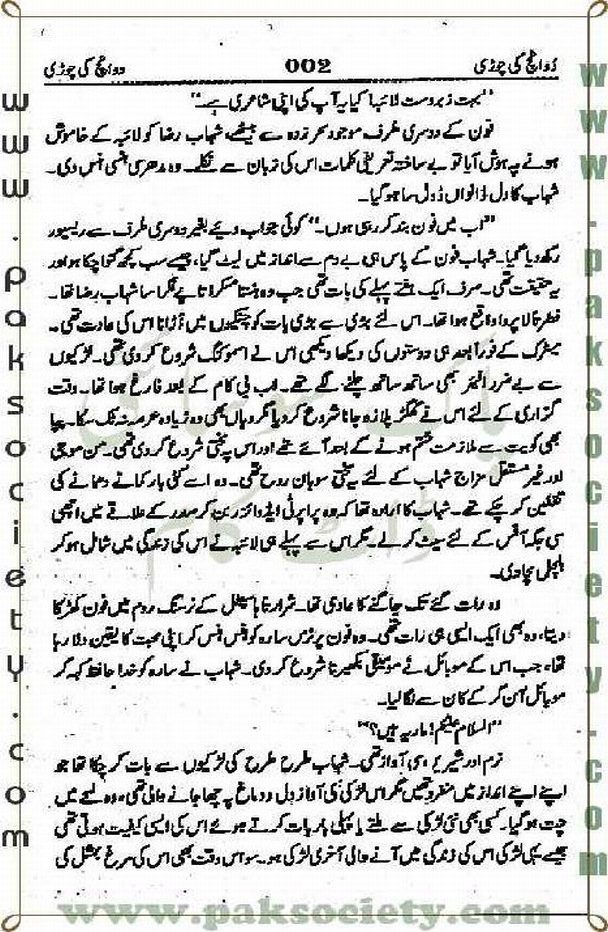 دو انچ کی چوڑی 002 دو انچ کی چوڑی
"بہت زبردست لائبہ! کیا یہ آپ کی اپنی شاعری ہے۔"
فون کے دوسری طرف موجود سحر زدہ سے بیٹھے شہاب رضا کو لائبہ کے خاموش
ہونے پہ ہوش آیا تو بے ساختہ تعریفی کلمات اس کی زبان سے نکلے۔ وہ مدھر سی ہنسی ہنس دی۔
شہاب کا دل ڈانواں ڈول سا ہو گیا۔
"اب میں فون بند کر رہی ہوں۔" کوئی جواب دیئے بغیر دوسری طرف سے ریسیور
رکھ دیا گیا۔ شہاب فون کے پاس ہی بے دم سے انداز میں لیٹ گیا، جیسے سب کچھ گنوا چکا ہو اور
یہ حقیقت تھی۔ صرف ایک ہفتے پہلے کی بات تھی جب وہ ہنستا مسکراتا بے فکرا سا شہاب رضا تھا۔
فطرتاً لا پروا واقع ہوا تھا۔ اس لئے بڑی سے بڑی بات کو چٹکیوں میں اڑانا اس کی عادت تھی۔
میٹرک کے فوراً بعد ہی دوستوں کی دیکھا دیکھی اس نے اسموکنگ شروع کر دی تھی۔ لڑکیوں
سے بے ضرر افیئر بھی ساتھ ساتھ چلنے لگے تھے۔ اب بی کام کے بعد فارغ ہوا تھا۔ وقت
گزاری کے لئے اس نے پلازہ جانا شروع کر دیا مگر وہاں بھی وہ زیادہ عرصہ نہ ٹک سکا۔ پپا
بھی کویت سے ملازمت ختم ہونے کے بعد آئے تھے اور اس پہ سختی شروع کر دی تھی۔ من موجی
اور غیر مستقل مزاج شہاب کے لئے یہ سختی سوہان روح تھی۔ وہ اسے کئی بار کمانے دھمانے کی
تلقین کر چکے تھے۔ شہاب کا ارادہ تھا کہ وہ پراپرٹی ایڈوائزر بن کر صدر کے علاقے میں اچھی
سی جگہ آفس کے لئے سیٹ کر لے۔ مگر اس سے پہلے ہی لائبہ نے اس کی زندگی میں شامل ہو کر
ہلچل مچا دی۔
وہ رات گئے تک جاگنے کا عادی تھا۔ شرارتاً ہاسپٹل کے نرسنگ روم میں فون کھڑکا
دیتا، وہ بھی ایک ایسی ہی رات تھی۔ وہ فون پر نرس سارہ کو ہنس ہنس کر اپنی محبت کا یقین دلا رہا
تھا، جب اس کے موبائل نے موسیقی بکھیرنا شروع کر دی۔ شہاب نے سارہ کو خدا حافظ کہہ کر
موبائل آن کر کے کان سے لگا لیا۔
"السلام علیکم! ماریہ ہیں؟"
نرم اور شیریں سی آواز تھی۔ شہاب طرح طرح کی لڑکیوں سے بات کر چکا تھا جو
اپنے اپنے انداز میں منفرد تھیں مگر اس لڑکی کی آواز دل و دماغ پر چھا جانے والی تھی، وہ لمحے میں
چت ہو گیا۔ کسی بھی نئی لڑکی سے ملتے یا پہلی بار بات کرتے ہوئے اس کی ایسی کیفیت ہوتی تھی
جیسے یہی لڑکی اس کی زندگی میں آنے والی آخری لڑکی ہو۔ سو اس وقت بھی اس کی کی
پاک سوسائٹی
ڈاٹ کام
www.paksociety.com
www.paksociety.com
www.paksociety.com